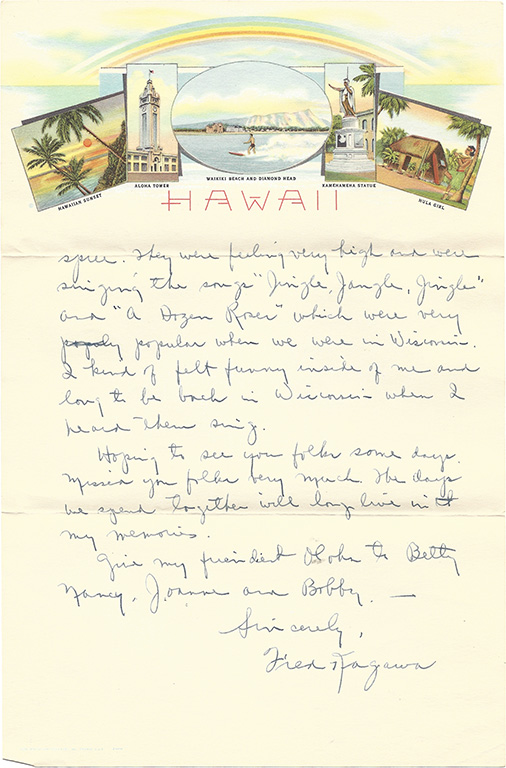 HAWAIIAN SUNSET
ALOHA TOWER
WAIKIKI BEACH AND DIAMOND HEAD
KAMEHAMEHA STATUE
HULA GIRL
HAWAII
spree. They were feeling very high and were
singing the songs "Jingle, Jangle, Jingle"
and "A Dozen Roses" which were very
popular when we were in Wisconsin.
I kind of felt funny inside of me and
long to be back in Wisconsin when I
heard them sing.
Hoping to see you folks some days.
Missed you folks very much. The days
we spend together will long live in
my memories.
Give my Aloha to Betty
Nancy, Joanne and Bobby. —
Sincerely,
Fred Kagawa